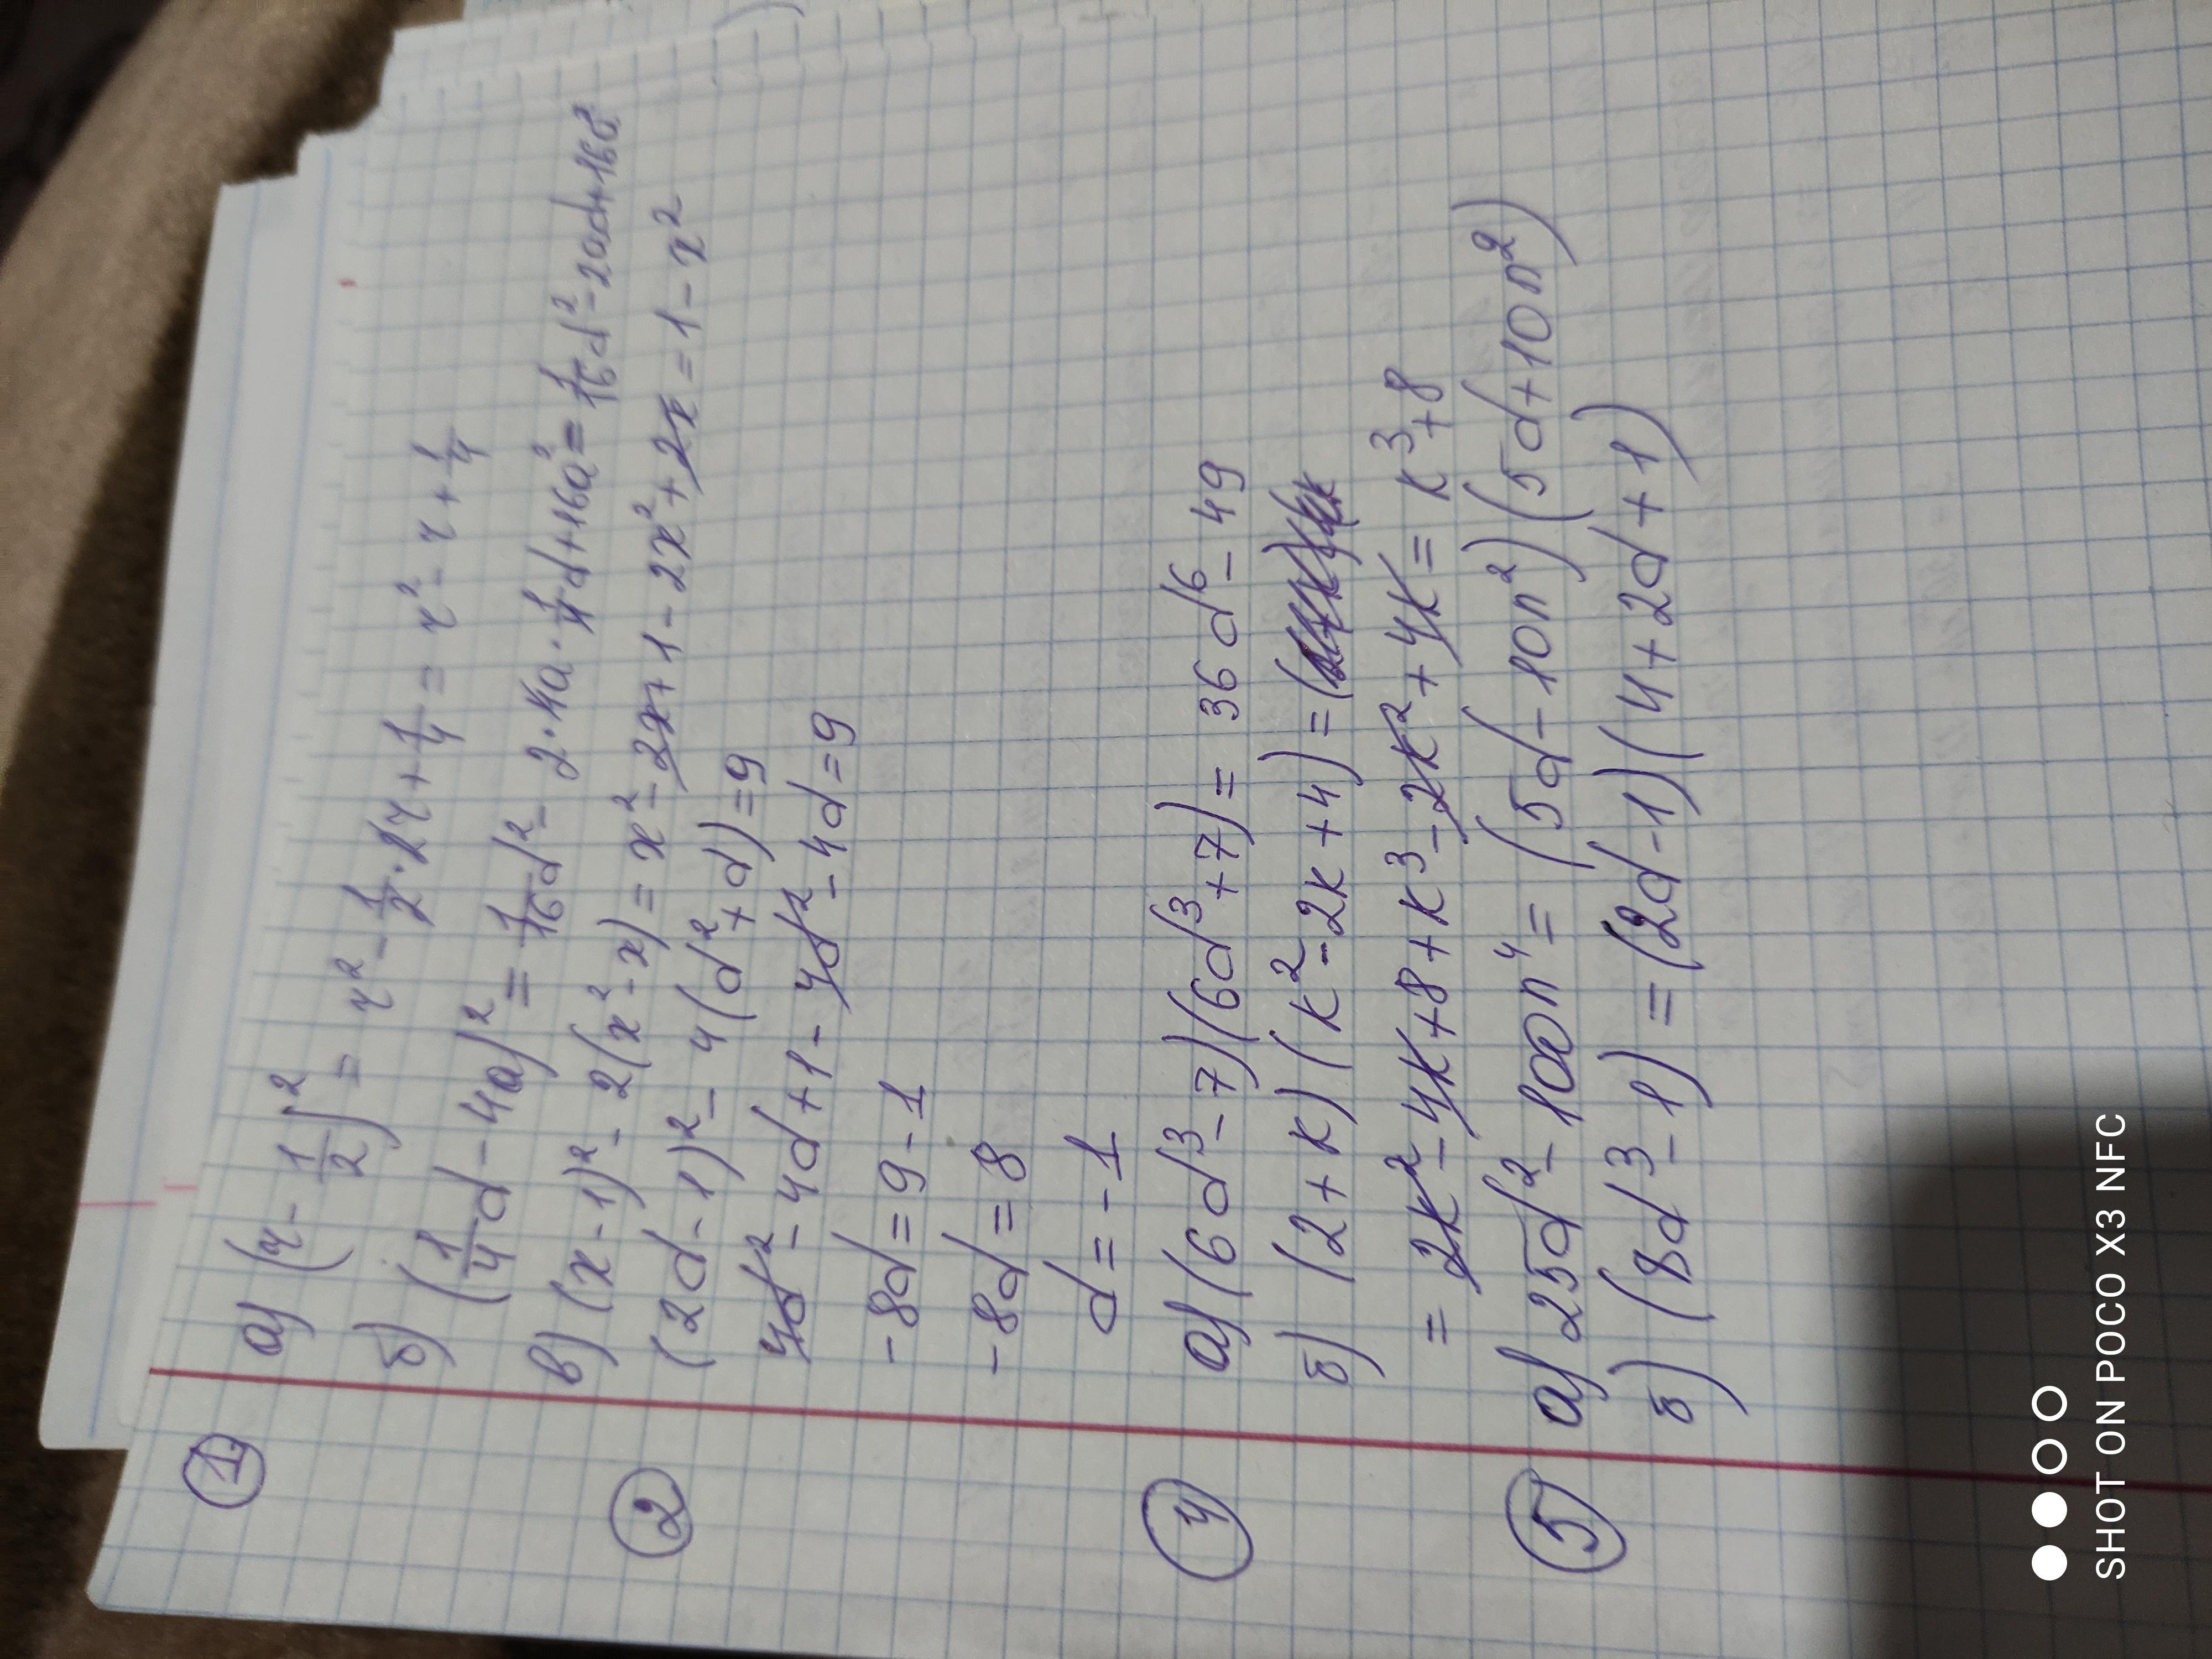 ① а) (r - 1/2)² = r² - 1/2 · 2r + 1/4 = r² - r + 1/4
б) (1/4 d - 4a)² = 1/16 d² - 2 · 4a · 1/4 d + 16a² = 1/16 d² - 2ad + 16a²
в) (x - 1)² - 2(x² - x) = x² - 2x + 1 - 2x² + 2x = 1 - x²
② (2d - 1)² - 4(d² + d) = 9
4d² - 4d + 1 - 4d² - 4d = 9
-8d = 9 - 1
-8d = 8
d = -1
④ а) (6d³ - 7)(6d³ + 7) = 36d⁶ - 49
б) (2 + k)(k² - 2k + 4) = (
= 2k² - 4k + 8 + k³ - 2k² + 4k = k³ + 8
⑤ а) 25d² - 100n⁴ = (5d - 10n²)(5d + 10n²)
б) (8d³ - 1) = (2d - 1)(4 + 2d + 1)
SHOT ON POCO X3 NFC